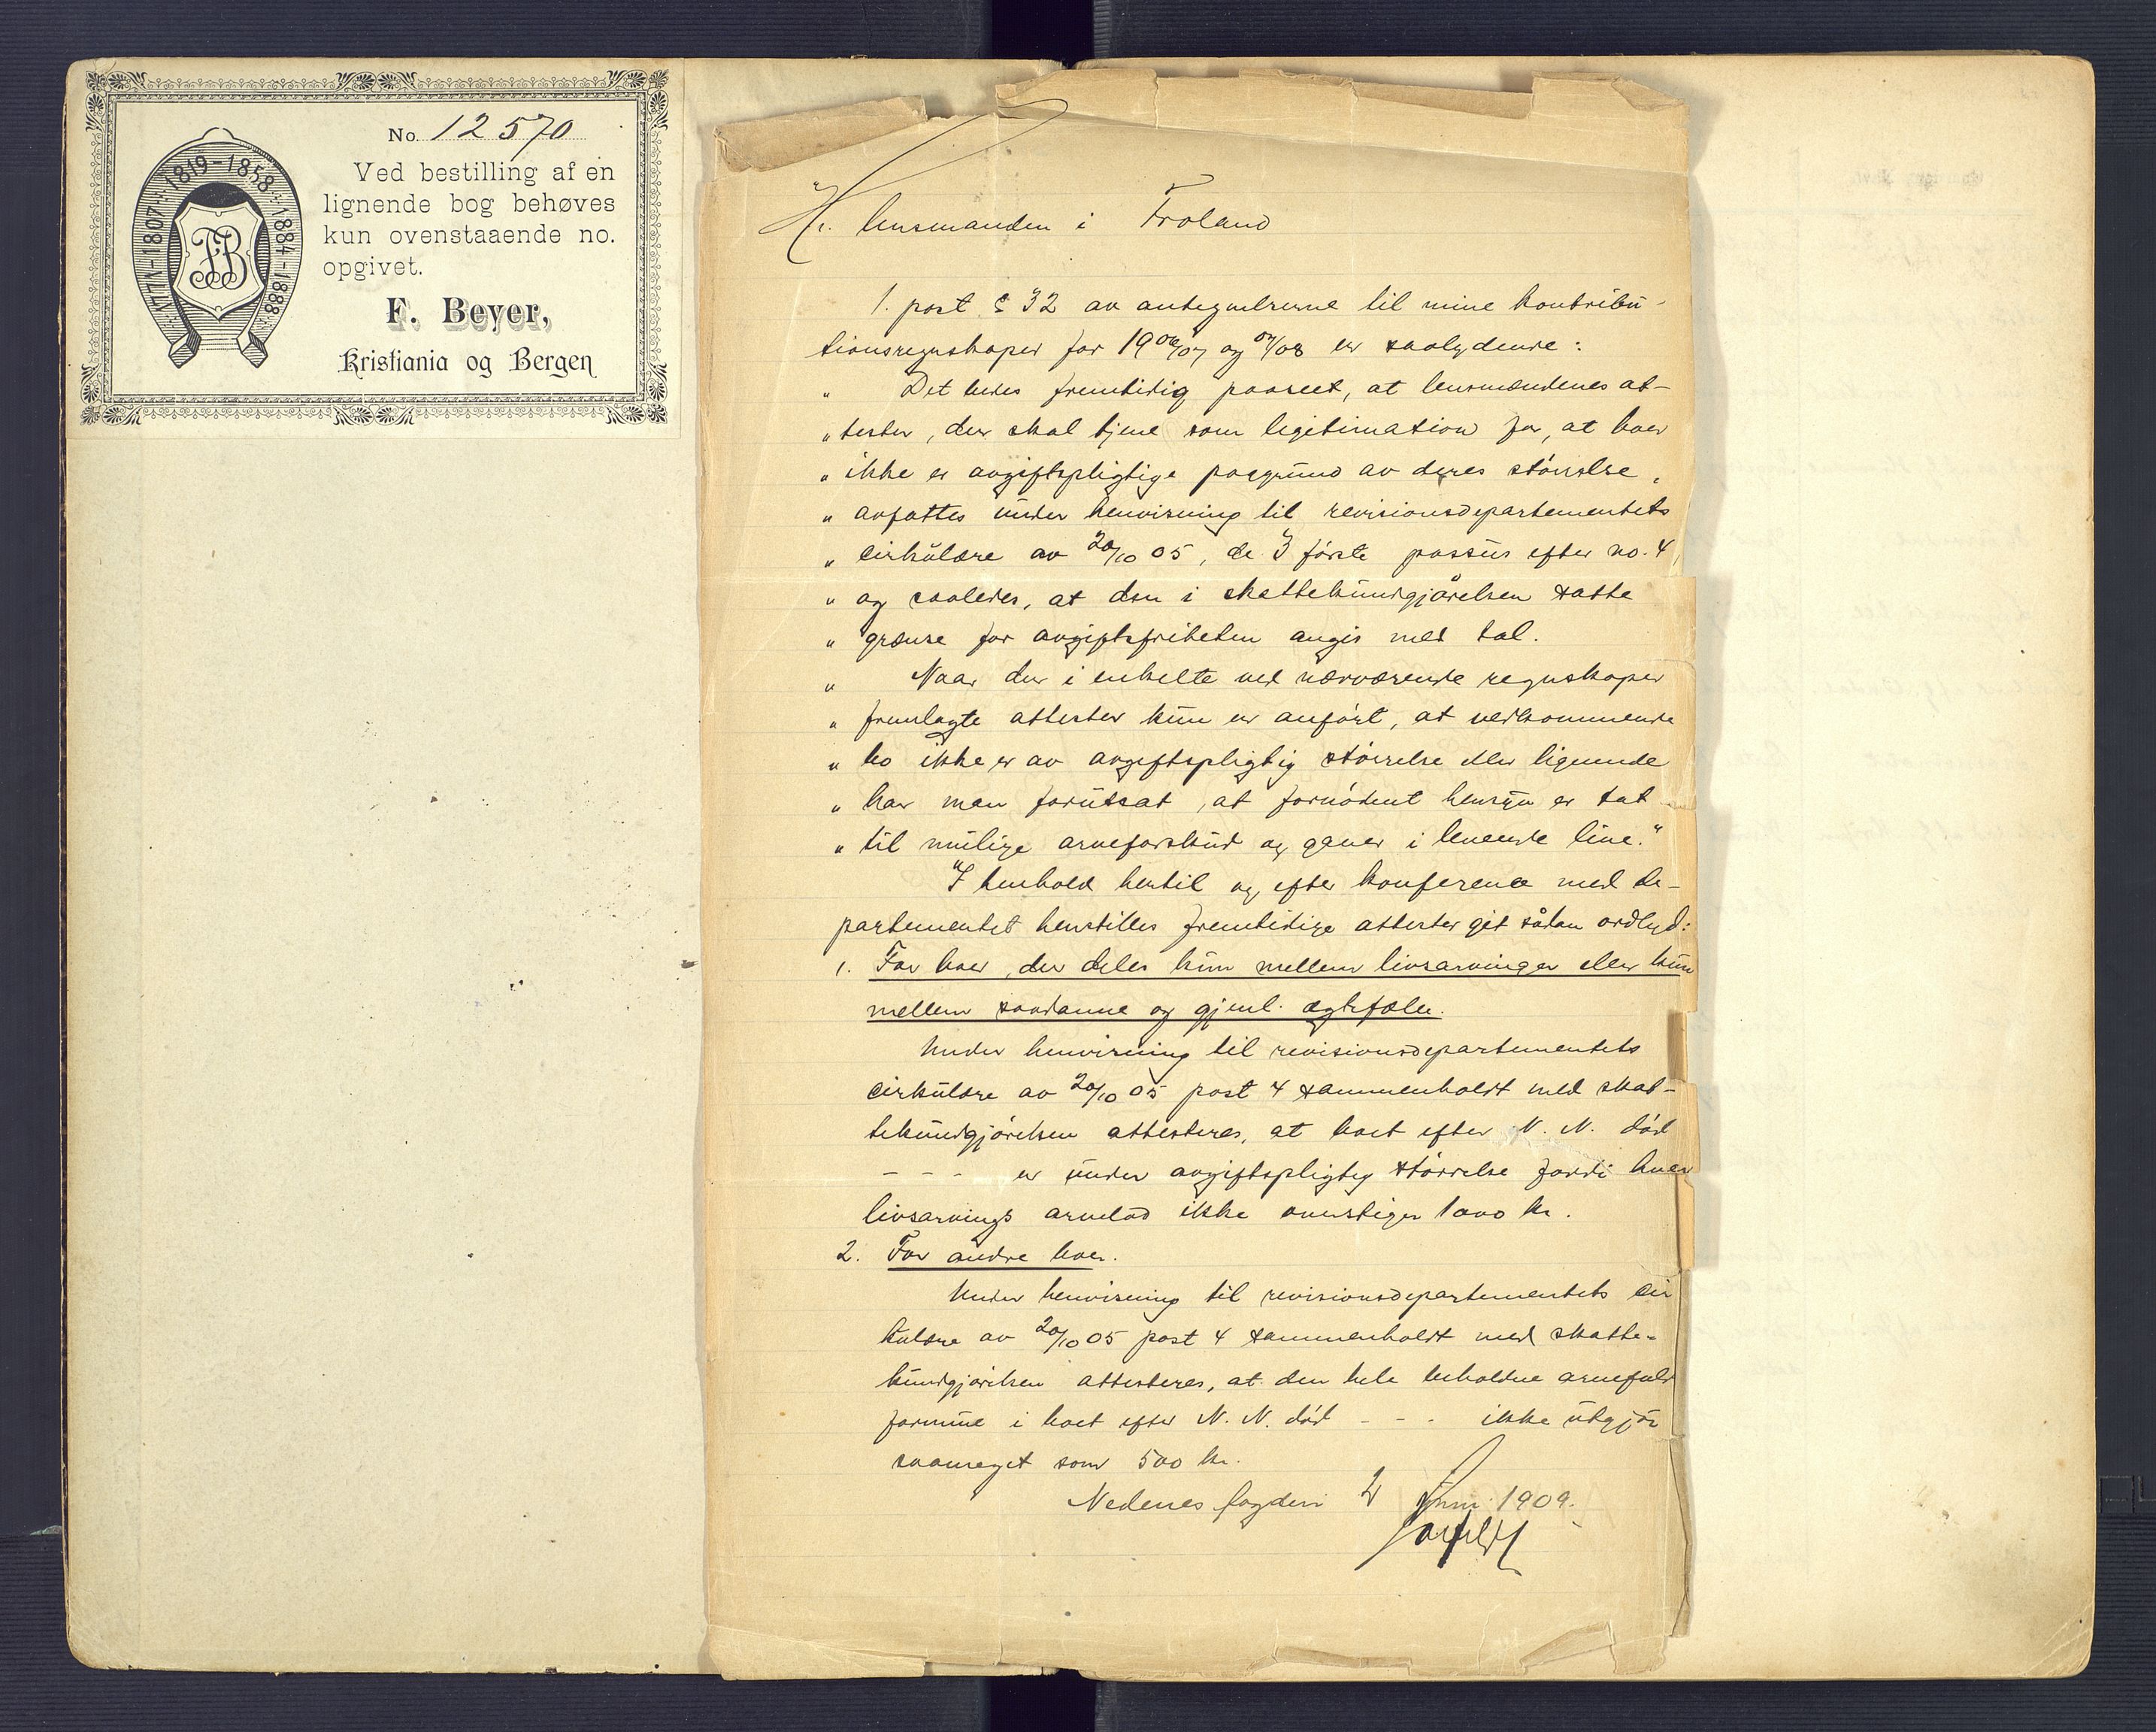 No. 12570
Ved bestilling af en
lignende bog behøves
kun ovenstaaende no.
opgivet.
F. Beyer,
Kristiania og Bergen
1771-1807 1819-1858 1884-1888
FB
Hr. lensmanden i Froland
1. post § 32 av antegnelserne til mine kontribu-
tionsregnskaper for 1906/07 og 07/08 er saalydende:
" Det bedes fremtidig paaseet, at lensmændenes at-
" tester, der skal tjene som legitimation for, at boer
" ikke er avgiftspligtige paagrund av deres størrelse,
" avfattes under henvisning til revisionsdepartementets
" cirkulære av 20/10 05, de 3 første passus efter no. 4,
" og saaledes, at den i skattekundgjørelsen satte
" grænse for avgiftsfriheten angis med tal.
" Naar der i enkelte ved nærværende regnskaper
" fremlagte attester kun er anført, at vedkommende
" bo ikke er av avgiftspligtig størrelse eller lignende
" har man forutsat, at fornødent hensyn er tat
" til mulige arveforskud og gaver i levende live."
I henhold hertil og efter konference med de-
partementet henstilles fremtidige attester git sådan ordlyd:
1. For boer, der deles kun mellem livsarvinger eller kun
mellem saadanne og gjenl. ægtefæle.
Under henvisning til revisionsdepartementets
cirkulære av 20/10 05 post 4 sammenholdt med skat-
tekundgjørelsen attesteres, at boet efter N. N. død
- - - er under avgiftspligtig størrelse fordi hver
livsarvings arvelod ikke overstiger 1000 kr.
2. For andre boer.
Under henvisning til revisionsdepartementets cir
kulære av 20/10 05 post 4 sammenholdt med skatte-
kundgjørelsen attesteres, at den hele beholdne arvefald
formue i boet efter N. N. død - - - ikke utgjør
saameget som 500 kr.
Nedenes fogderi 2 1909.